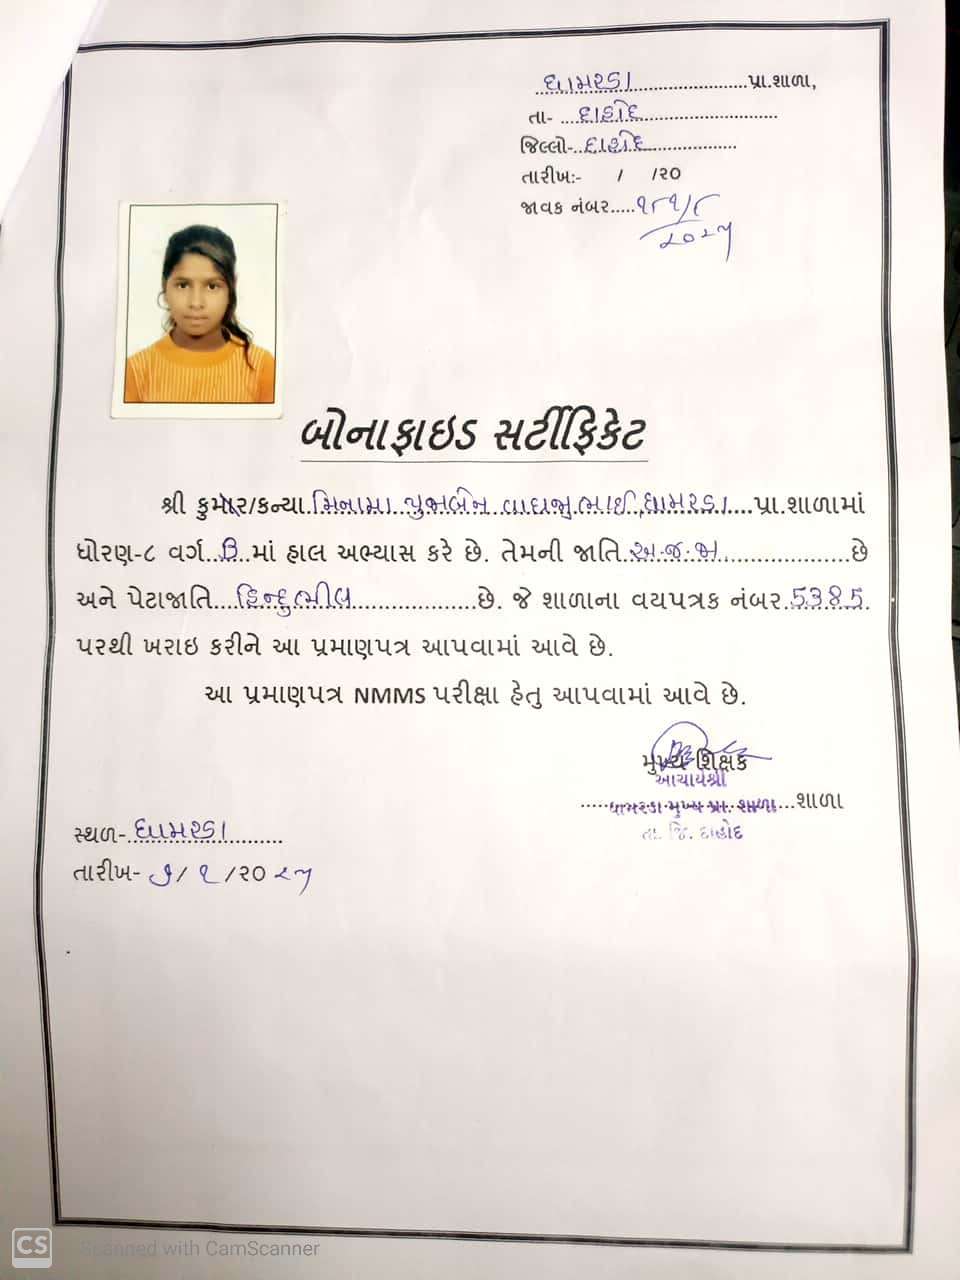 ધામરડા પ્રા.શાળા,
તા- દાહોદ
જિલ્લો- દાહોદ
તારીખ:- / /૨૦
જાવક નંબર.....
૨૦૨૫
બોનાફાઇડ સર્ટીફિકેટ
શ્રી કુમાર/કન્યા મિનામા પુજાબેન વાઘજીભાઈ, ધામરડા પ્રા.શાળામાં
ધોરણ-૮ વર્ગ માં હાલ અભ્યાસ કરે છે. તેમની જાતિ અ.જ.જા છે
અને પેટાજાતિ હિન્દુ ભીલ છે. જે શાળાના વયપત્રક નંબર 5385
પરથી ખરાઇ કરીને આ પ્રમાણપત્ર આપવામાં આવે છે.
આ પ્રમાણપત્ર NMMS પરીક્ષા હેતુ આપવામાં આવે છે.
મુખ્ય શિક્ષક
આચાર્યશ્રી
ધામરડા મુખ્ય પ્રા. શાળા શાળા
તા. જિ. દાહોદ
સ્થળ- ધામરડા
તારીખ- ૭/ ૧ /૨૦ ૨૫
CS Scanned with CamScanner